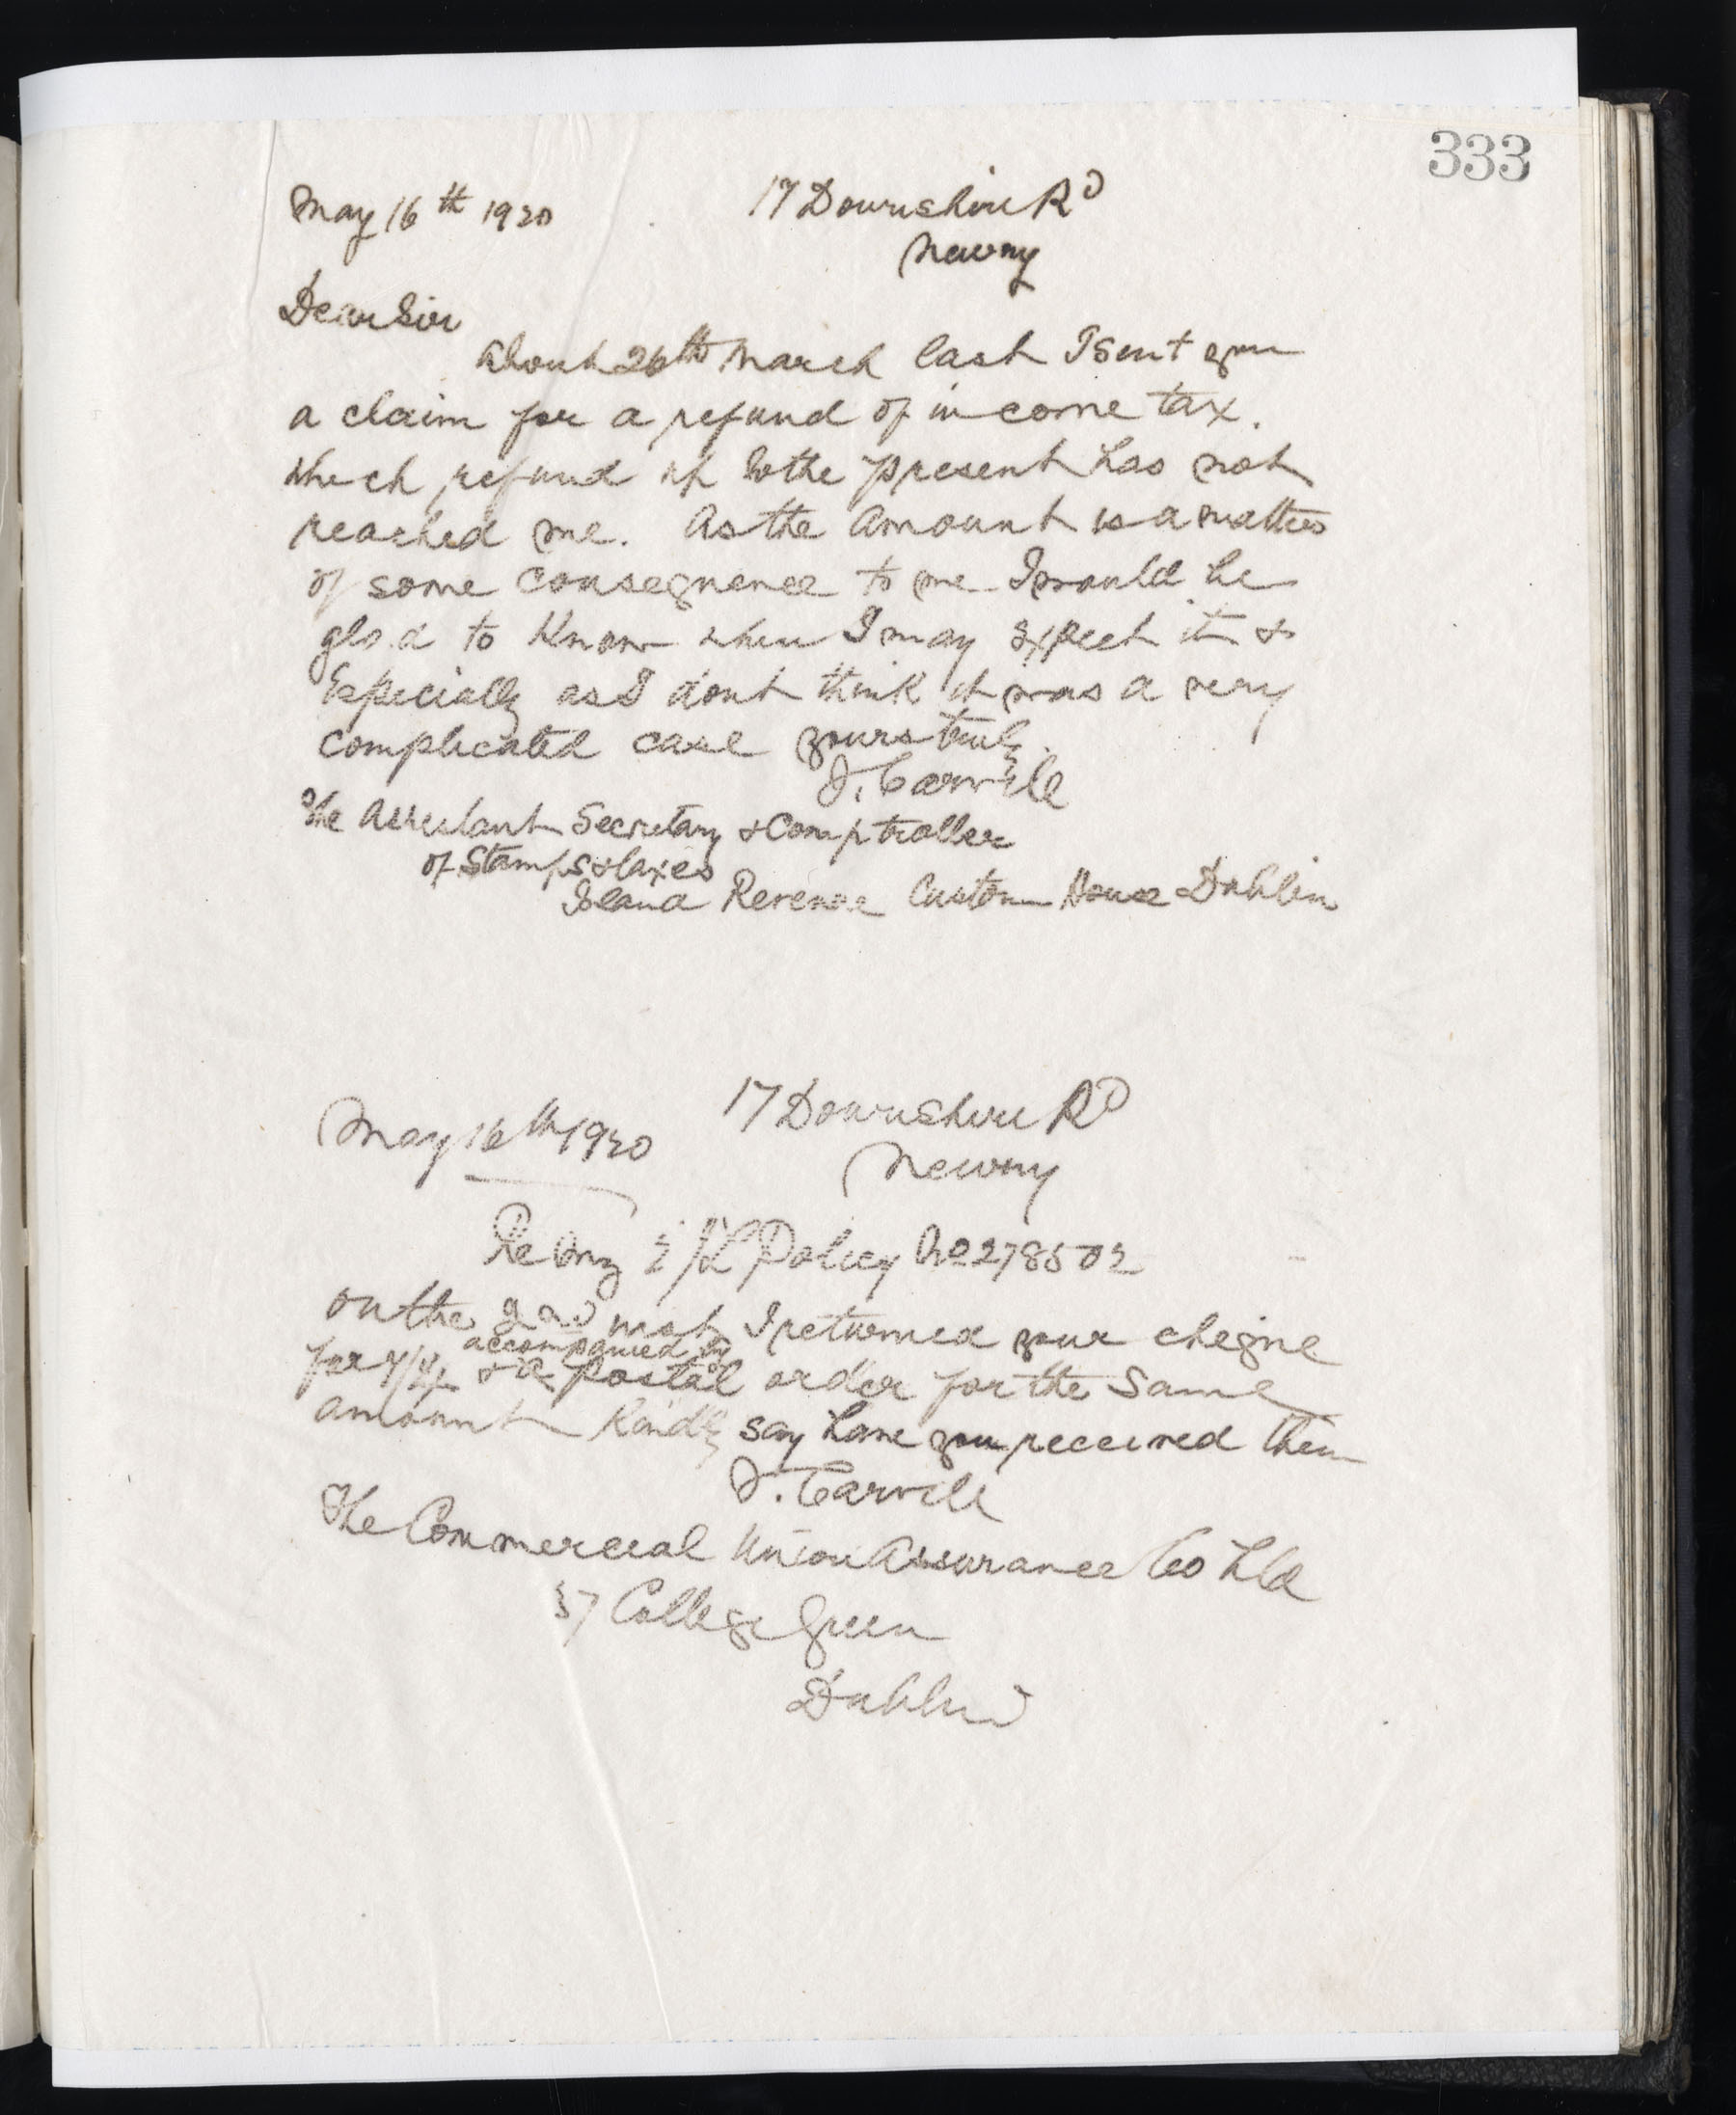 333
May 16th 1920 17 Downshire Rd
Newry
Dear Sir
About 26th March last I sent you
a claim for a refund of income tax.
Which refund up to the present has not
reached me. As the amount is a matter
of some consequence to me I would be
glad to know when I may expect it &
Especially as I dont think it was a very
complicated case yours truly.
J. Carvill
The Assistant Secretary & Comptroller
of Stamps & taxes
Inland Revenue Custom House Dublin
May 16th 1920 17 Downshire Rd
Newry
Re my Policy No 278502
on the inst I returned your cheque
accompanied by
for 4/4 & a postal order for the same
amount Kindly say have you received them
J. Carvill
The Commercial Union Assurance Co Ltd
37 College Green
Dublin